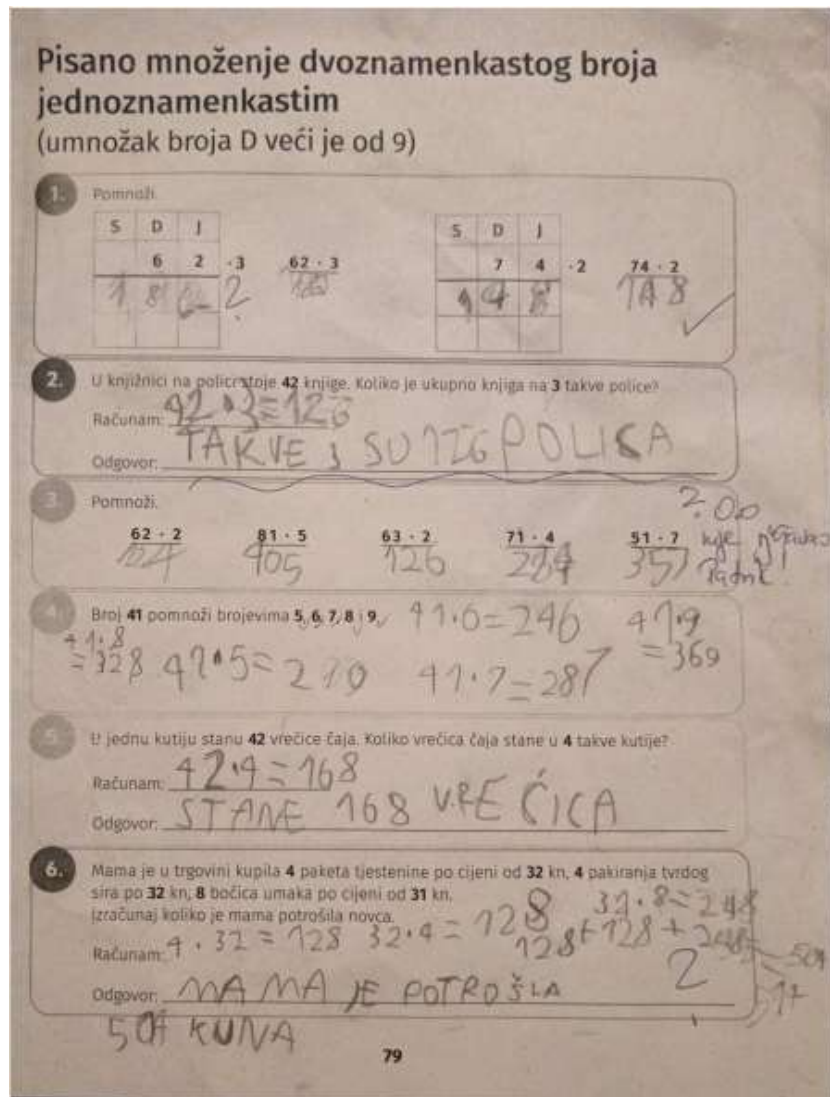 Pisano množenje dvoznamenkastog broja
jednoznamenkastim
(umnožak broja D veći je od 9)
1. Pomnoži.
S D J S D J
6 2 · 3 62 · 3 7 4 · 2 74 · 2
1 8 ? 1 4 8 148
2. U knjižnici na polici stoje 42 knjige. Koliko je ukupno knjiga na 3 takve police?
Računam: 42 · 3 = 126
Odgovor: TAKVE SU 126 POLICA
3. Pomnoži.
62 · 2 81 · 5 63 · 2 71 · 4 51 · 7
124 405 126 284 357
4. Broj 41 pomnoži brojevima 5, 6, 7, 8 i 9. 41·6=246 41·9
41·8 = 369
= 328 41·5= 41·7=287
5. U jednu kutiju stanu 42 vrećice čaja. Koliko vrećica čaja stane u 4 takve kutije?
Računam: 42·4=168
Odgovor: STANE 168 VREĆICA
6. Mama je u trgovini kupila 4 paketa tjestenine po cijeni od 32 kn, 4 pakiranja tvrdog
sira po 32 kn, 8 bočica umaka po cijeni od 31 kn.
Izračunaj koliko je mama potrošila novca. 31·8=248
Računam: 4 · 32 = 128 32·4 = 128 128+128+248=
Odgovor: MAMA JE POTROŠLA
KUNA
79